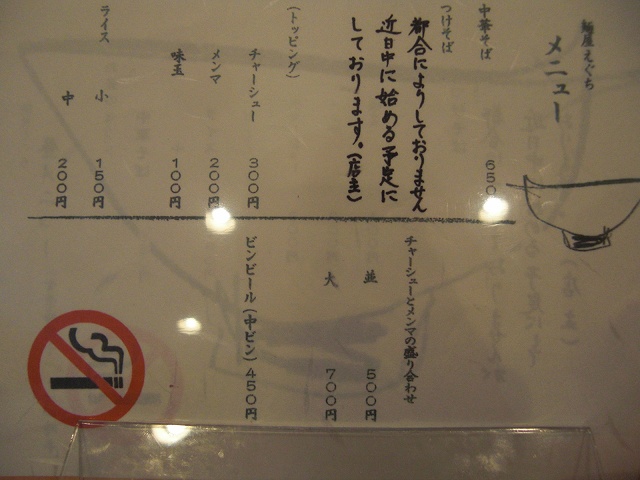 麺屋えぐち
メニュー
中華そば 650
つけそば
都合によりしておりません
近日中に始める予定に
しております。(店主)
(トッピング)
チャーシュー 300円
メンマ 200円
味玉 100円
ライス
小 150円
中 200円
チャーシューとメンマの盛り合わせ
並 500円
大 700円
ビンビール(中ビン) 450円